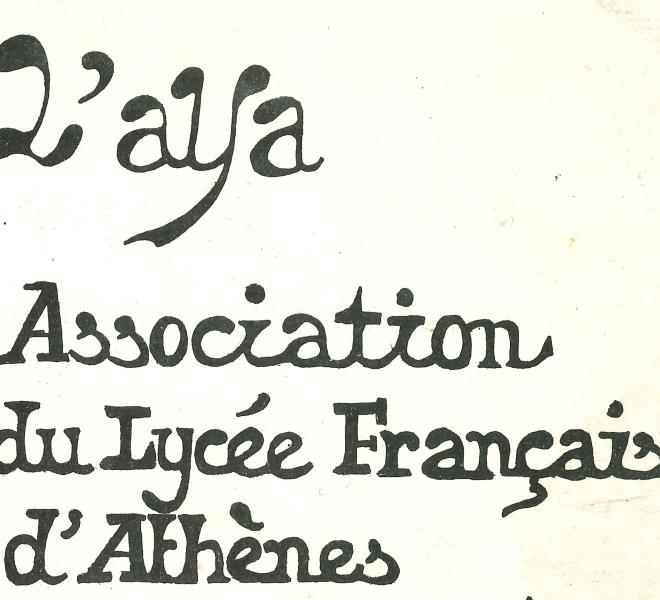 L'aya
Association
du Lycée Français
d'Athènes